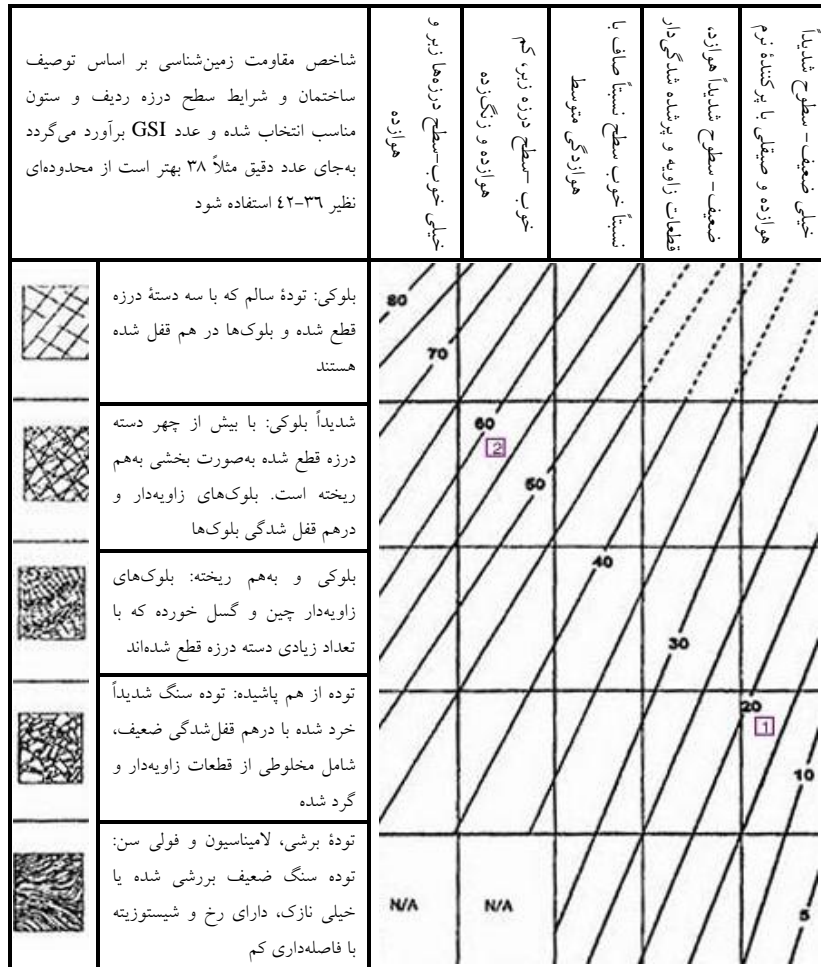 شاخص مقاومت زمین‌شناسی بر اساس توصیف
ساختمان و شرایط سطح درزه ردیف و ستون
مناسب انتخاب شده و عدد GSI برآورد می‌گردد
به‌جای عدد دقیق مثلاً ٣٨ بهتر است از محدوده‌ای
نظیر ٣٦-٤٢ استفاده شود
خیلی خوب-سطح درزه‌ها زبر و
هوازده
خوب -سطح درزه زبر، کم
هوازده و زنگ‌زده
نسبتاً خوب سطح نسبتاً صاف با
هوازدگی متوسط
ضعیف- سطوح شدیداً هوازد،
قطعات زاویه و پرشده شدگی‌دار
خیلی ضعیف- سطوح شدیداً
هوازده و صیقلی با پرکنندهٔ نرم
بلوکی: تودهٔ سالم که با سه دستهٔ درزه
قطع شده و بلوک‌ها در هم قفل شده
هستند
شدیداً بلوکی: با بیش از چهر دسته
درزه قطع شده به‌صورت بخشی به‌هم
ریخته است. بلوک‌های زاویه‌دار و
درهم قفل شدگی بلوک‌ها
بلوکی و به‌هم ریخته: بلوک‌های
زاویه‌دار چین و گسل خورده که با
تعداد زیادی دسته درزه قطع شده‌اند
توده از هم پاشیده: توده سنگ شدیداً
خرد شده با درهم قفل‌شدگی ضعیف،
شامل مخلوطی از قطعات زاویه‌دار و
گرد شده
تودهٔ برشی، لامیناسیون و فولی سن:
توده سنگ ضعیف بررشی شده یا
خیلی نازک، دارای رخ و شیستوزیته
با فاصله‌داری کم
80
70
60
2
50
40
30
20
1
10
N/A
N/A
5